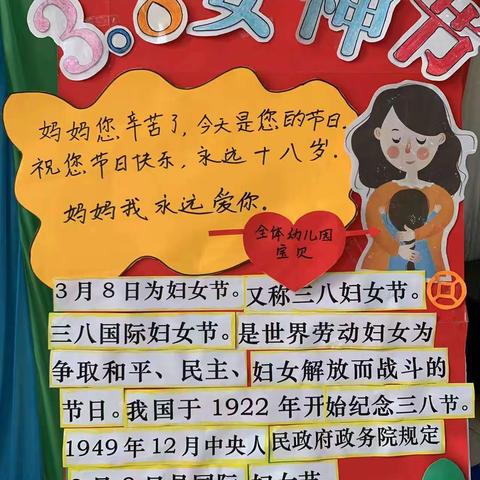 3.8女神节
妈妈您辛苦了,今天是您的节日.
祝您节日快乐,永远十八岁.
妈妈我永远爱你.
全体幼儿园
宝贝
3月8日为妇女节。又称三八妇女节。
三八国际妇女节。是世界劳动妇女为
争取和平、民主、妇女解放而战斗的
节日。我国于1922年开始纪念三八节。
1949年12月中央人民政府政务院规定
3月8日是国际妇女节